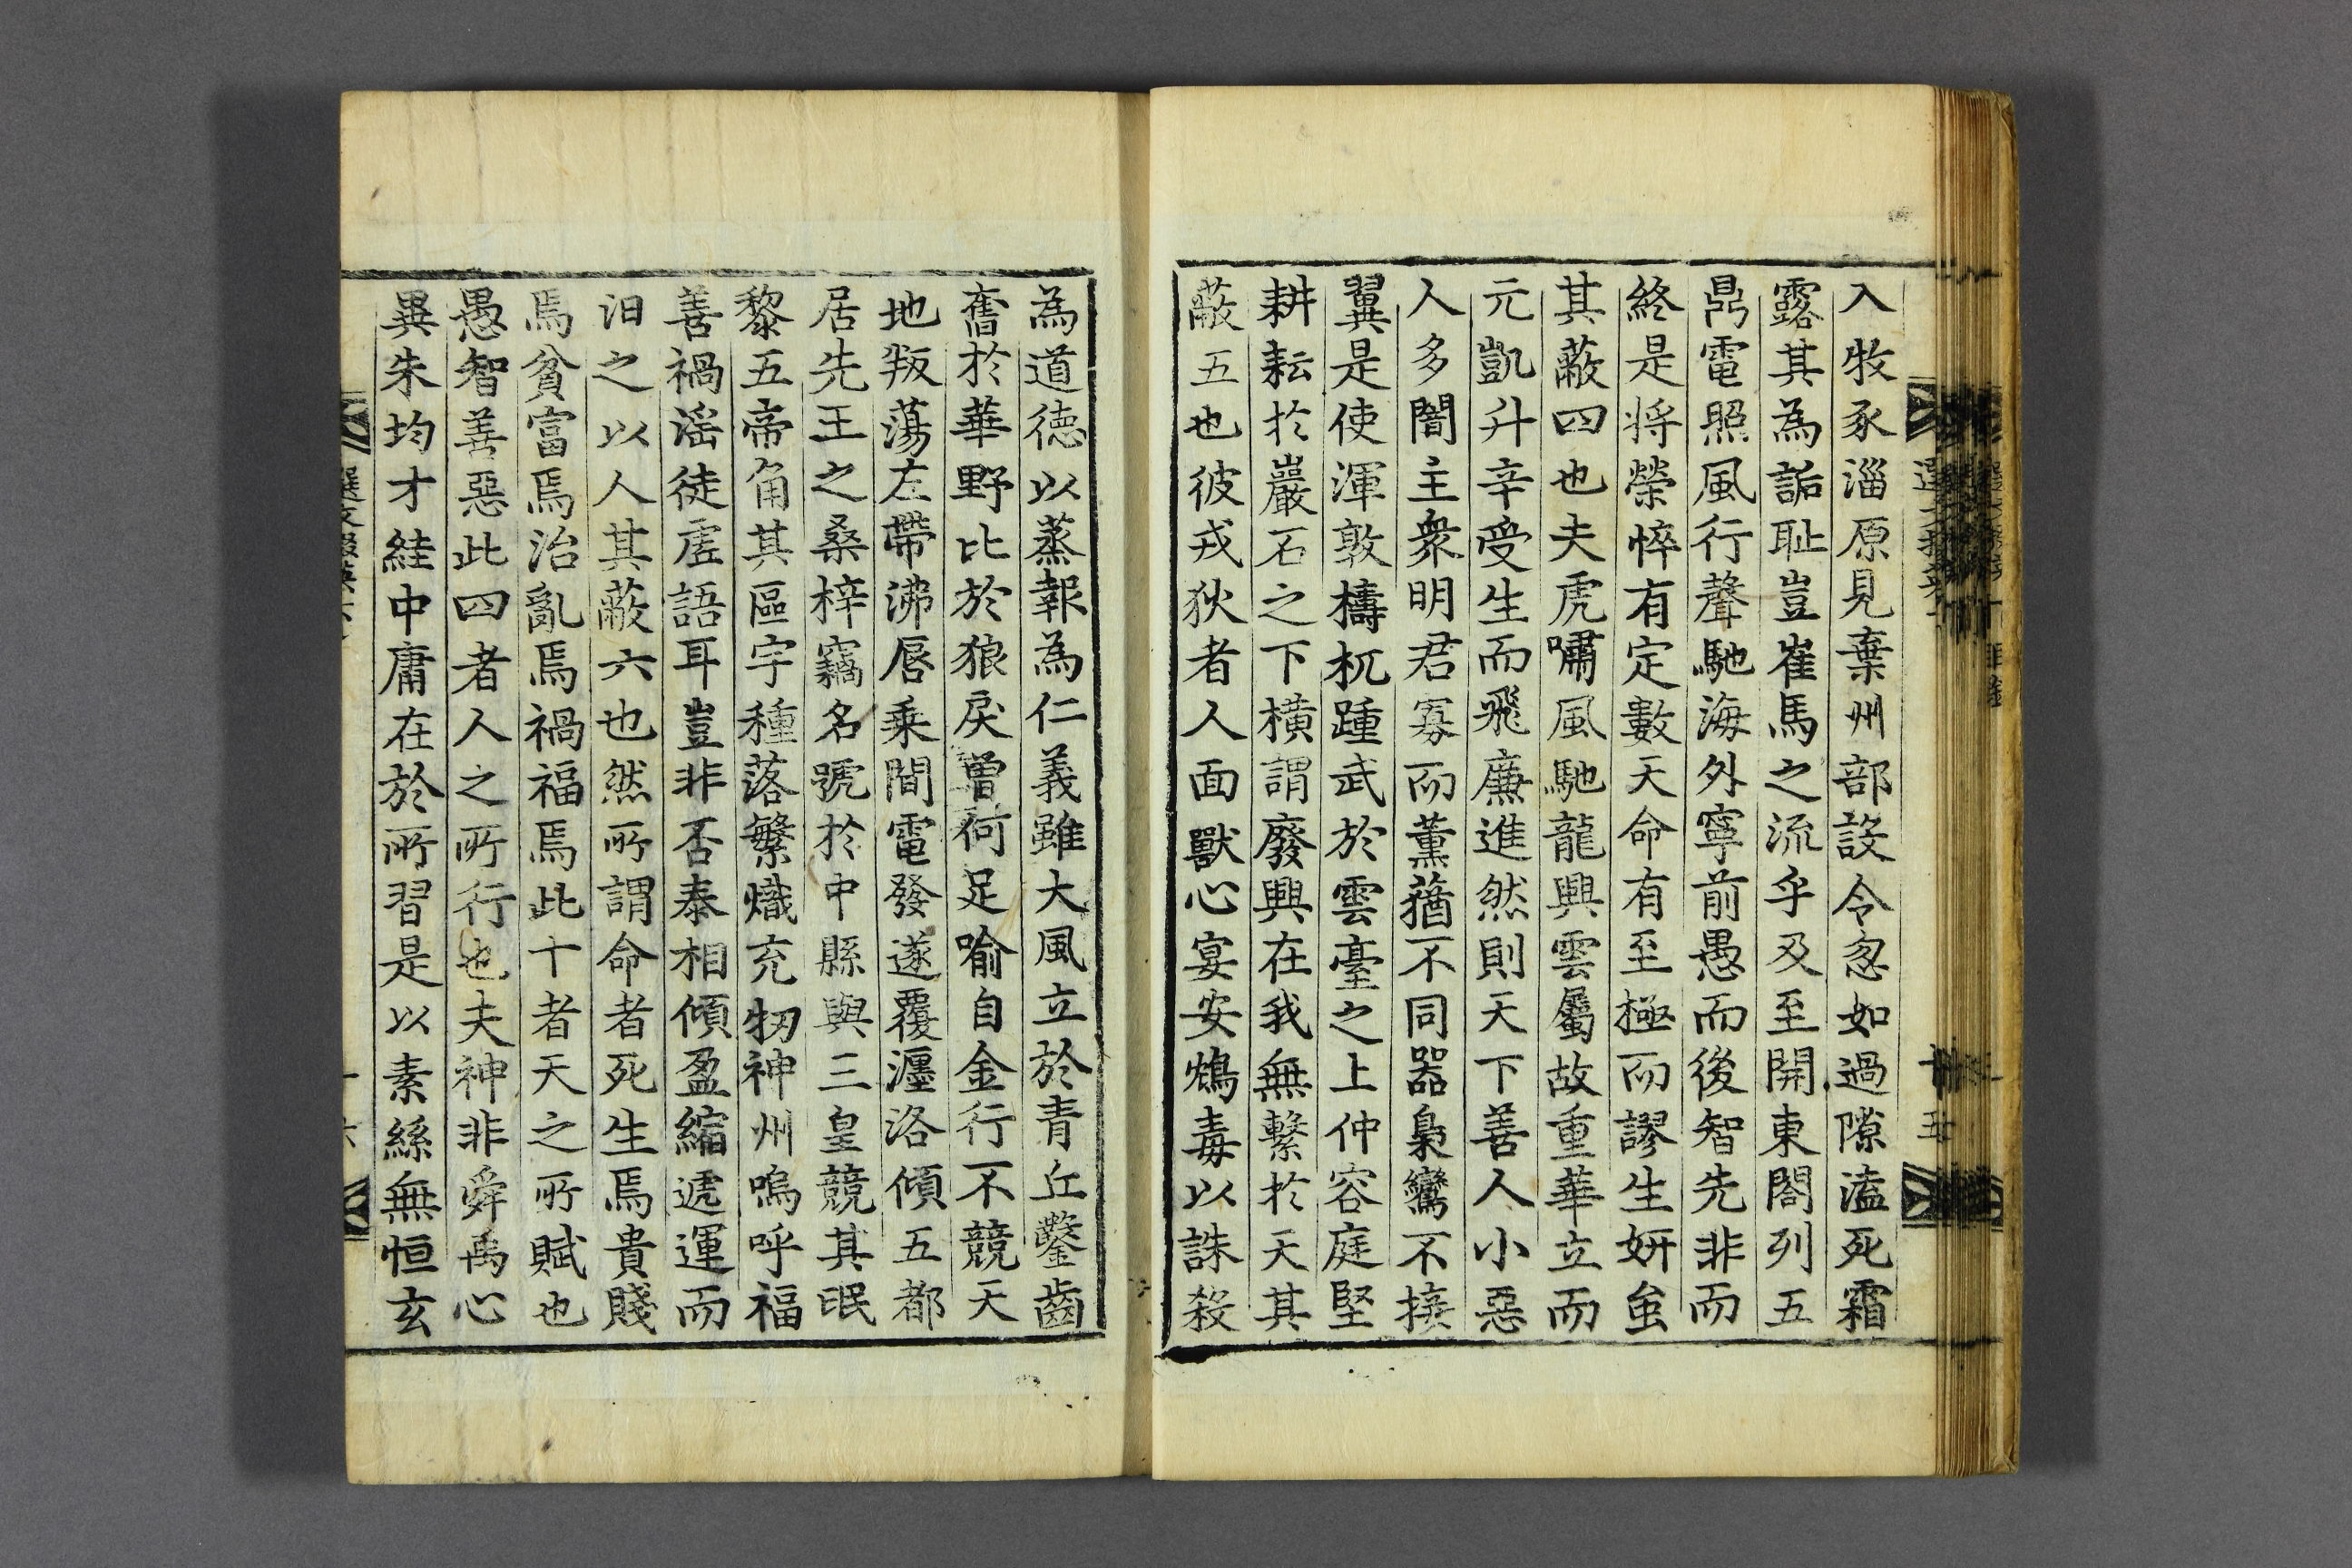 入牧豕淄原見棄州部設令忽如過隙溘死霜
露其為詬耻豈崔馬之流乎及至開東閤列五
鼎電照風行聲馳海外寧前愚而後智先非而
終是将榮悴有定數天命有至極而謬生妍蚩
其蔽四也夫虎嘯風馳龍興雲屬故重華立而
元凱升辛受生而飛廉進然則天下善人小惡
人多闇主衆明君寡而薫蕕不同器梟鸞不接
翼是使渾敦檮杌踵武於雲臺之上仲容庭堅
耕耘於巖石之下橫謂廢興在我無繫於天其
蔽五也彼戎狄者人面獸心宴安鴆毒以誅殺
為道德以蒸報為仁義雖大風立於青丘鑿齒
奮於華野比於狼戾曾何足喻自金行不競天
地叛蕩左帶沸唇乗間電發遂覆瀍洛傾五都
居先王之桑梓竊名號於中縣與三皇競其氓
黎五帝角其區宇種落繁熾充牣神州嗚呼福
善禍滛徒虗語耳豈非否泰相傾盈縮遞運而
汨之以人其蔽六也然所謂命者死生焉貴賤
焉貧富焉治亂焉禍福焉此十者天之所賦也
愚智善惡此四者人之所行也夫神非舜禹心
異朱均才絓中庸在於所習是以素絲無恒玄